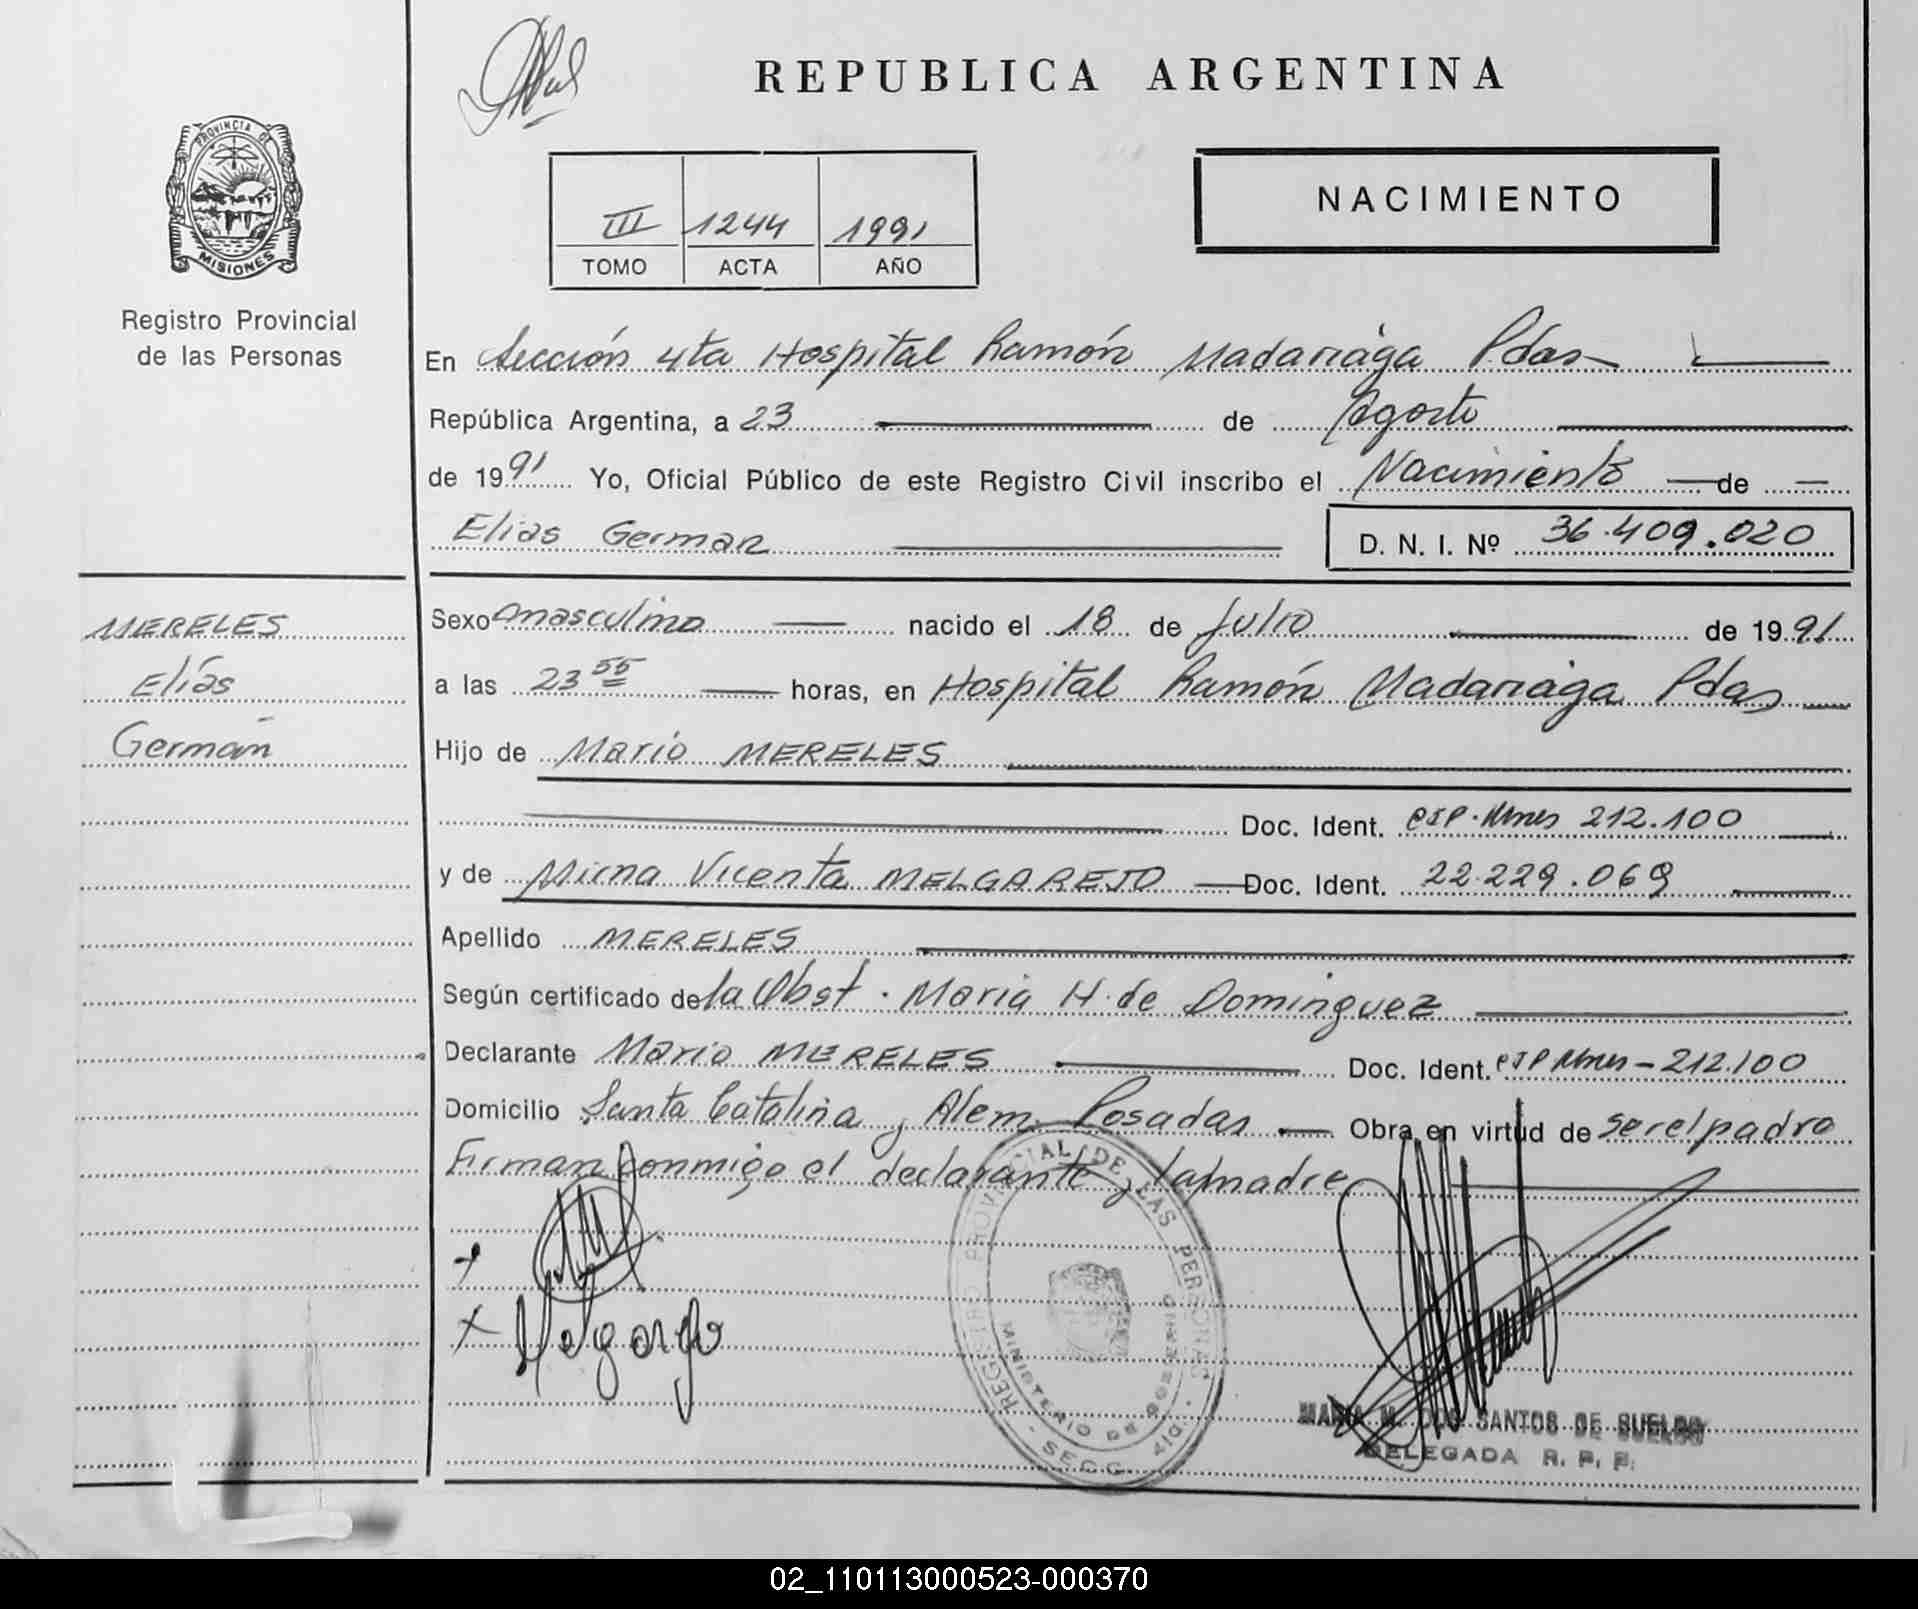 REPUBLICA ARGENTINA
PROVINCIA DE
MISIONES
Registro Provincial
de las Personas
III 1244 1991
TOMO ACTA AÑO
NACIMIENTO
En Sección 4ta Hospital Ramón Madariaga Pdas
República Argentina, a 23 de Agosto
de 1991 Yo, Oficial Público de este Registro Civil inscribo el Nacimiento de
Elias German D. N. I. Nº 36.409.020
MERELES
Elías
Germán
Sexo masculino nacido el 18 de Julio de 1991
a las 23 55 horas, en Hospital Ramón Madariaga Pdas
Hijo de Mario MERELES
Doc. Ident. 212.100
y de Mirna Vicenta MELGAREJO Doc. Ident. 22.229.069
Apellido MERELES
Según certificado de la Obst. Maria H. de Dominguez
Declarante Mario MERELES Doc. Ident. 212.100
Domicilio Santa Catalina y Alem. Posadas Obra en virtud de ser el padre
Firman conmigo el declarante y la madre
Melgarejo
REGISTRO PROVINCIAL DE LAS PERSONAS
MINISTERIO DE GOBIERNO
SECC. 4ta.
MARIA M. DOS SANTOS DE SUELDO
DELEGADA R. P. P.
02_110113000523-000370